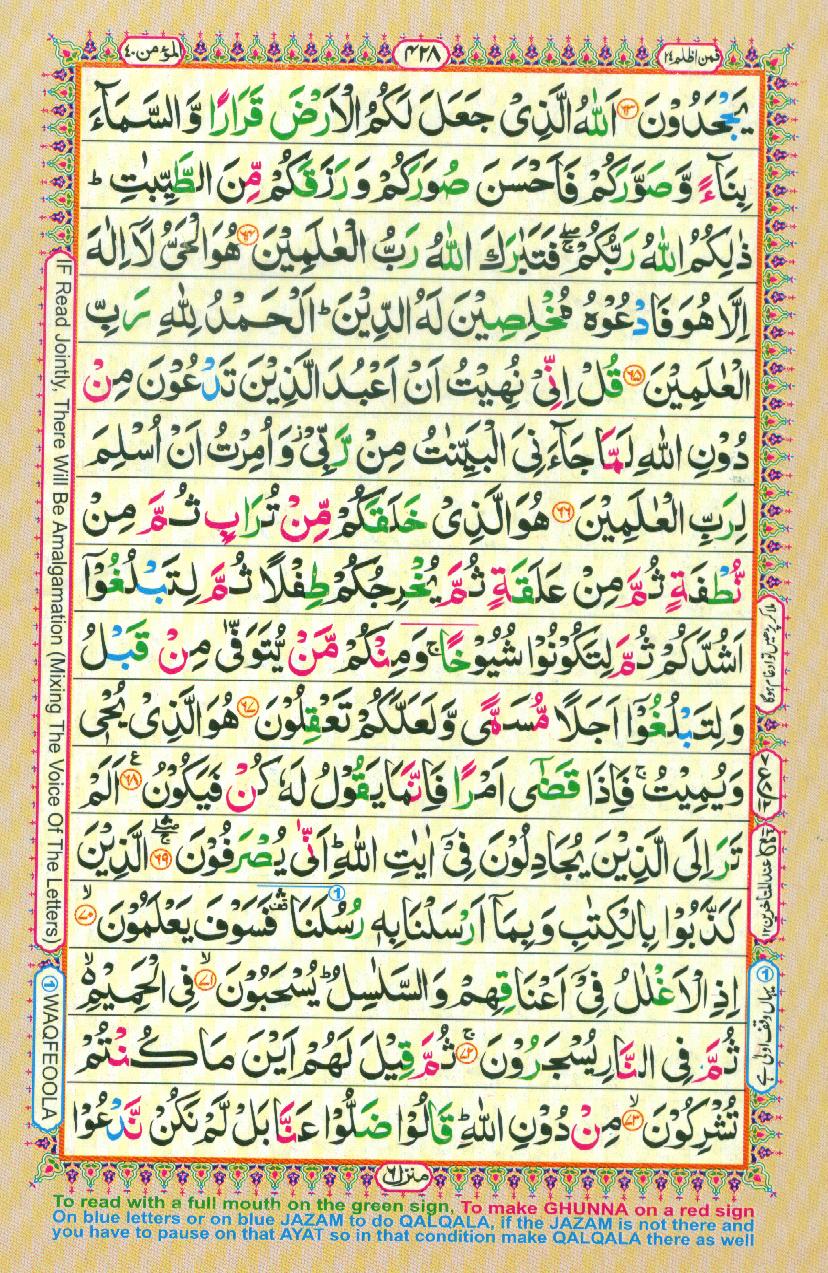 فمن اظلم ٢٤
٤٢٨
المؤمن ٤٠
يَجْحَدُوْنَ ﴿٦٣﴾ اَللّٰهُ الَّذِىْ جَعَلَ لَكُمُ الْاَرْضَ قَرَارًا وَّالسَّمَآءَ
بِنَآءً وَّصَوَّرَكُمْ فَاَحْسَنَ صُوَرَكُمْ وَرَزَقَكُمْ مِّنَ الطَّيِّبٰتِ ؕ
ذٰلِكُمُ اللّٰهُ رَبُّكُمْ ۖۚ فَتَبٰرَكَ اللّٰهُ رَبُّ الْعٰلَمِيْنَ ﴿٦٤﴾ هُوَالْحَىُّ لَآ اِلٰهَ
اِلَّا هُوَ فَادْعُوْهُ مُخْلِصِيْنَ لَهُ الدِّيْنَ ؕ اَلْحَمْدُ لِلّٰهِ رَبِّ
الْعٰلَمِيْنَ ﴿٦٥﴾ قُلْ اِنِّىْ نُهِيْتُ اَنْ اَعْبُدَ الَّذِيْنَ تَدْعُوْنَ مِنْ
دُوْنِ اللّٰهِ لَمَّا جَآءَنِىَ الْبَيِّنٰتُ مِنْ رَّبِّىْ ز وَاُمِرْتُ اَنْ اُسْلِمَ
لِرَبِّ الْعٰلَمِيْنَ ﴿٦٦﴾ هُوَالَّذِىْ خَلَقَكُمْ مِّنْ تُرَابٍ ثُمَّ مِنْ
نُّطْفَةٍ ثُمَّ مِنْ عَلَقَةٍ ثُمَّ يُخْرِجُكُمْ طِفْلًا ثُمَّ لِتَبْلُغُوْٓا
اَشُدَّكُمْ ثُمَّ لِتَكُوْنُوْا شُيُوْخًا ۚ وَمِنْكُمْ مَّنْ يُّتَوَفّٰى مِنْ قَبْلُ
وَلِتَبْلُغُوْٓا اَجَلًا مُّسَمًّى وَّلَعَلَّكُمْ تَعْقِلُوْنَ ﴿٦٧﴾ هُوَالَّذِىْ يُحْىٖ
وَيُمِيْتُ ۚ فَاِذَا قَضٰٓى اَمْرًا فَاِنَّمَا يَقُوْلُ لَهٗ كُنْ فَيَكُوْنُ ﴿٦٨﴾ ع اَلَمْ
تَرَ اِلَى الَّذِيْنَ يُجَادِلُوْنَ فِىْٓ اٰيٰتِ اللّٰهِ ؕ اَنّٰى يُصْرَفُوْنَ ﴿٦٩﴾ ۖۛۚ الَّذِيْنَ
كَذَّبُوْا بِالْكِتٰبِ وَبِمَآ اَرْسَلْنَا بِهٖ رُسُلَنَا ۛ فَسَوْفَ يَعْلَمُوْنَ ﴿٧٠﴾ ۙ
اِذِ الْاَغْلٰلُ فِىْٓ اَعْنَاقِهِمْ وَالسَّلٰسِلُ ؕ يُسْحَبُوْنَ ﴿٧١﴾ ۙ فِى الْحَمِيْمِ ۙ
ثُمَّ فِى النَّارِ يُسْجَرُوْنَ ﴿٧٢﴾ ۚ ثُمَّ قِيْلَ لَهُمْ اَيْنَ مَا كُنْتُمْ
تُشْرِكُوْنَ ﴿٧٣﴾ ۙ مِنْ دُوْنِ اللّٰهِ ؕ قَالُوْا ضَلُّوْا عَنَّا بَلْ لَّمْ نَكُنْ نَّدْعُوْا
منزل ٦
IF Read Jointly, There Will Be Amalgamation (Mixing The Voice Of The Letters)
① WAQFEOOLA
① یہاں وقف اولیٰ ہے
To read with a full mouth on the green sign, To make GHUNNA on a red sign
On blue letters or on blue JAZAM to do QALQALA, if the JAZAM is not there and
you have to pause on that AYAT so in that condition make QALQALA there as well